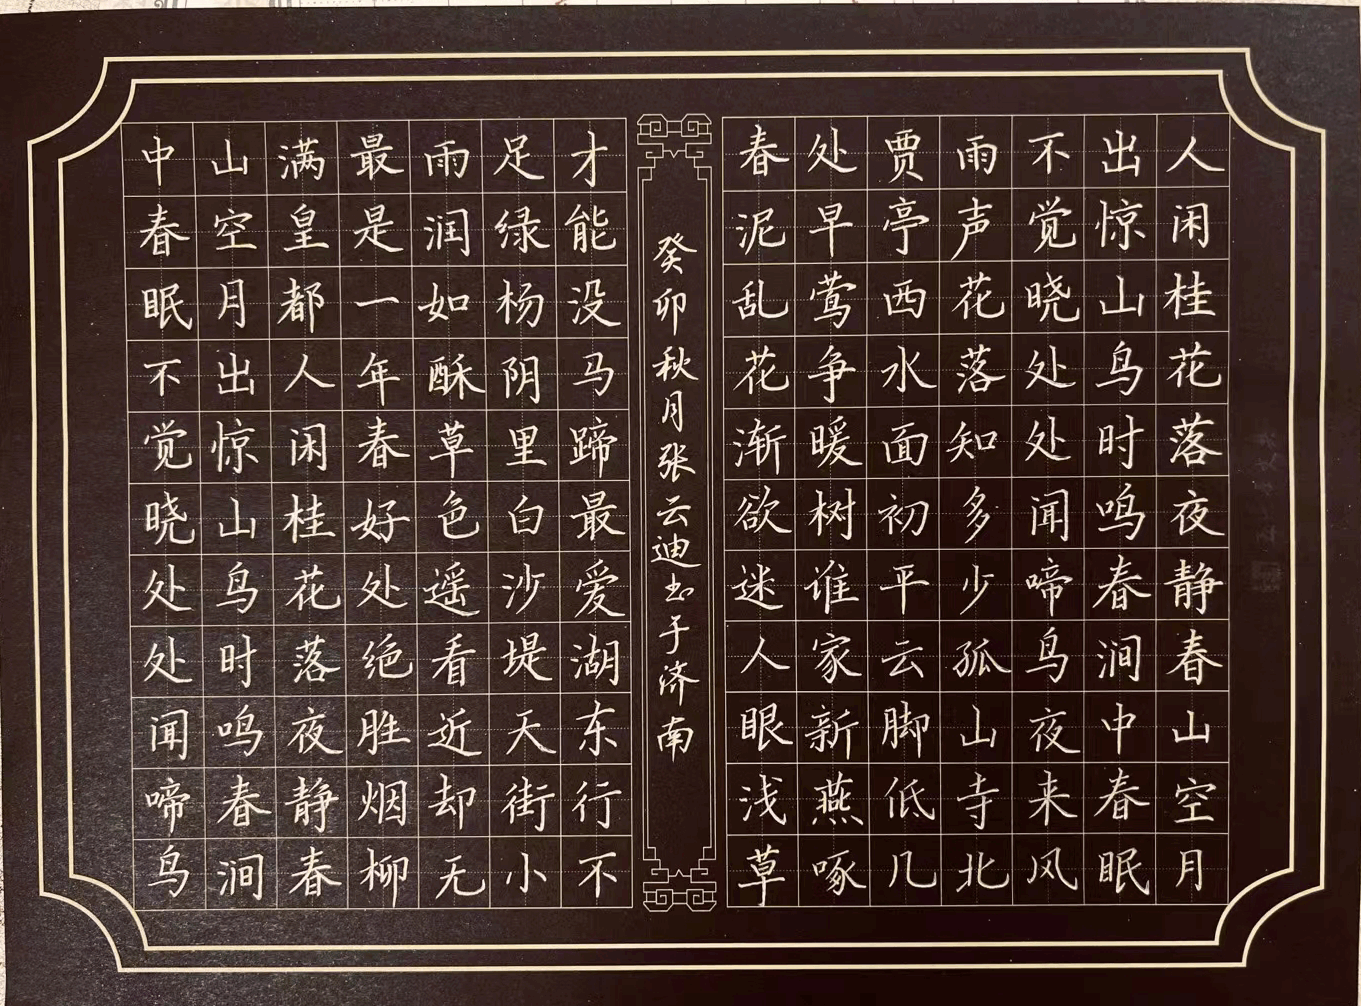 人闲桂花落夜静春山空月
出惊山鸟时鸣春涧中春眠
不觉晓处处闻啼鸟夜来风
雨声花落知多少孤山寺北
贾亭西水面初平云脚低几
处早莺争暖树谁家新燕啄
春泥乱花渐欲迷人眼浅草
才能没马蹄最爱湖东行不
足绿杨阴里白沙堤天街小
雨润如酥草色遥看近却无
最是一年春好处绝胜烟柳
满皇都人闲桂花落夜静春
山空月出惊山鸟时鸣春涧
中春眠不觉晓处处闻啼鸟
癸卯秋月张云迪书于济南